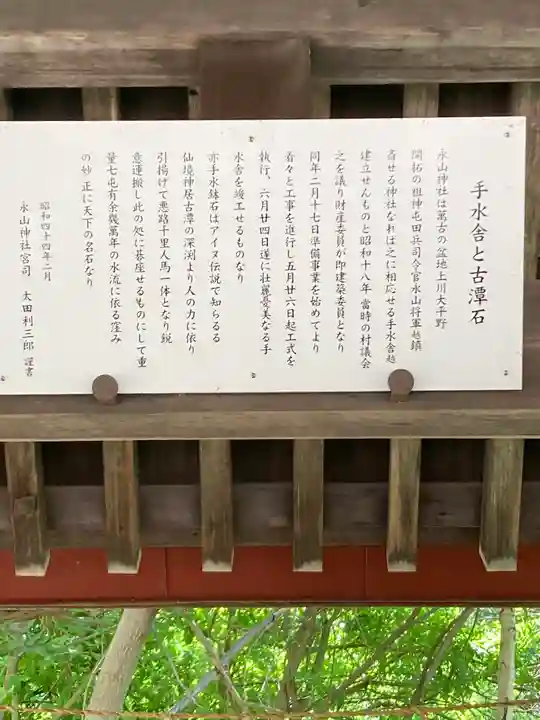 手水舎と古潭石
永山神社は萬古の盆地上川大平野
開拓の祖神屯田兵司令官永山将軍越鎮
斎せる神社なれば之に相応せる手水舎越
建立せんものと昭和十八年當時の村議会
之を議り財産委員が即建築委員となり
同年二月十七日準備事業を始めてより
着々と工事を進行し五月廿六日起工式を
執行、六月廿四日遂に壮麗憂美なる手
水舎を竣工せるものなり
亦手水鉢石はアイヌ伝説で知らるる
仙境神居古潭の深渕より人の力に依り
引揚げて悪路千里人馬一体となり鋭
意運搬し此の処に碁座せるものにして重
量七屯有余幾萬年の水流に依る窪み
の妙正に天下の名石なり
昭和四十四年二月
永山神社宮司 太田利三郎 謹書